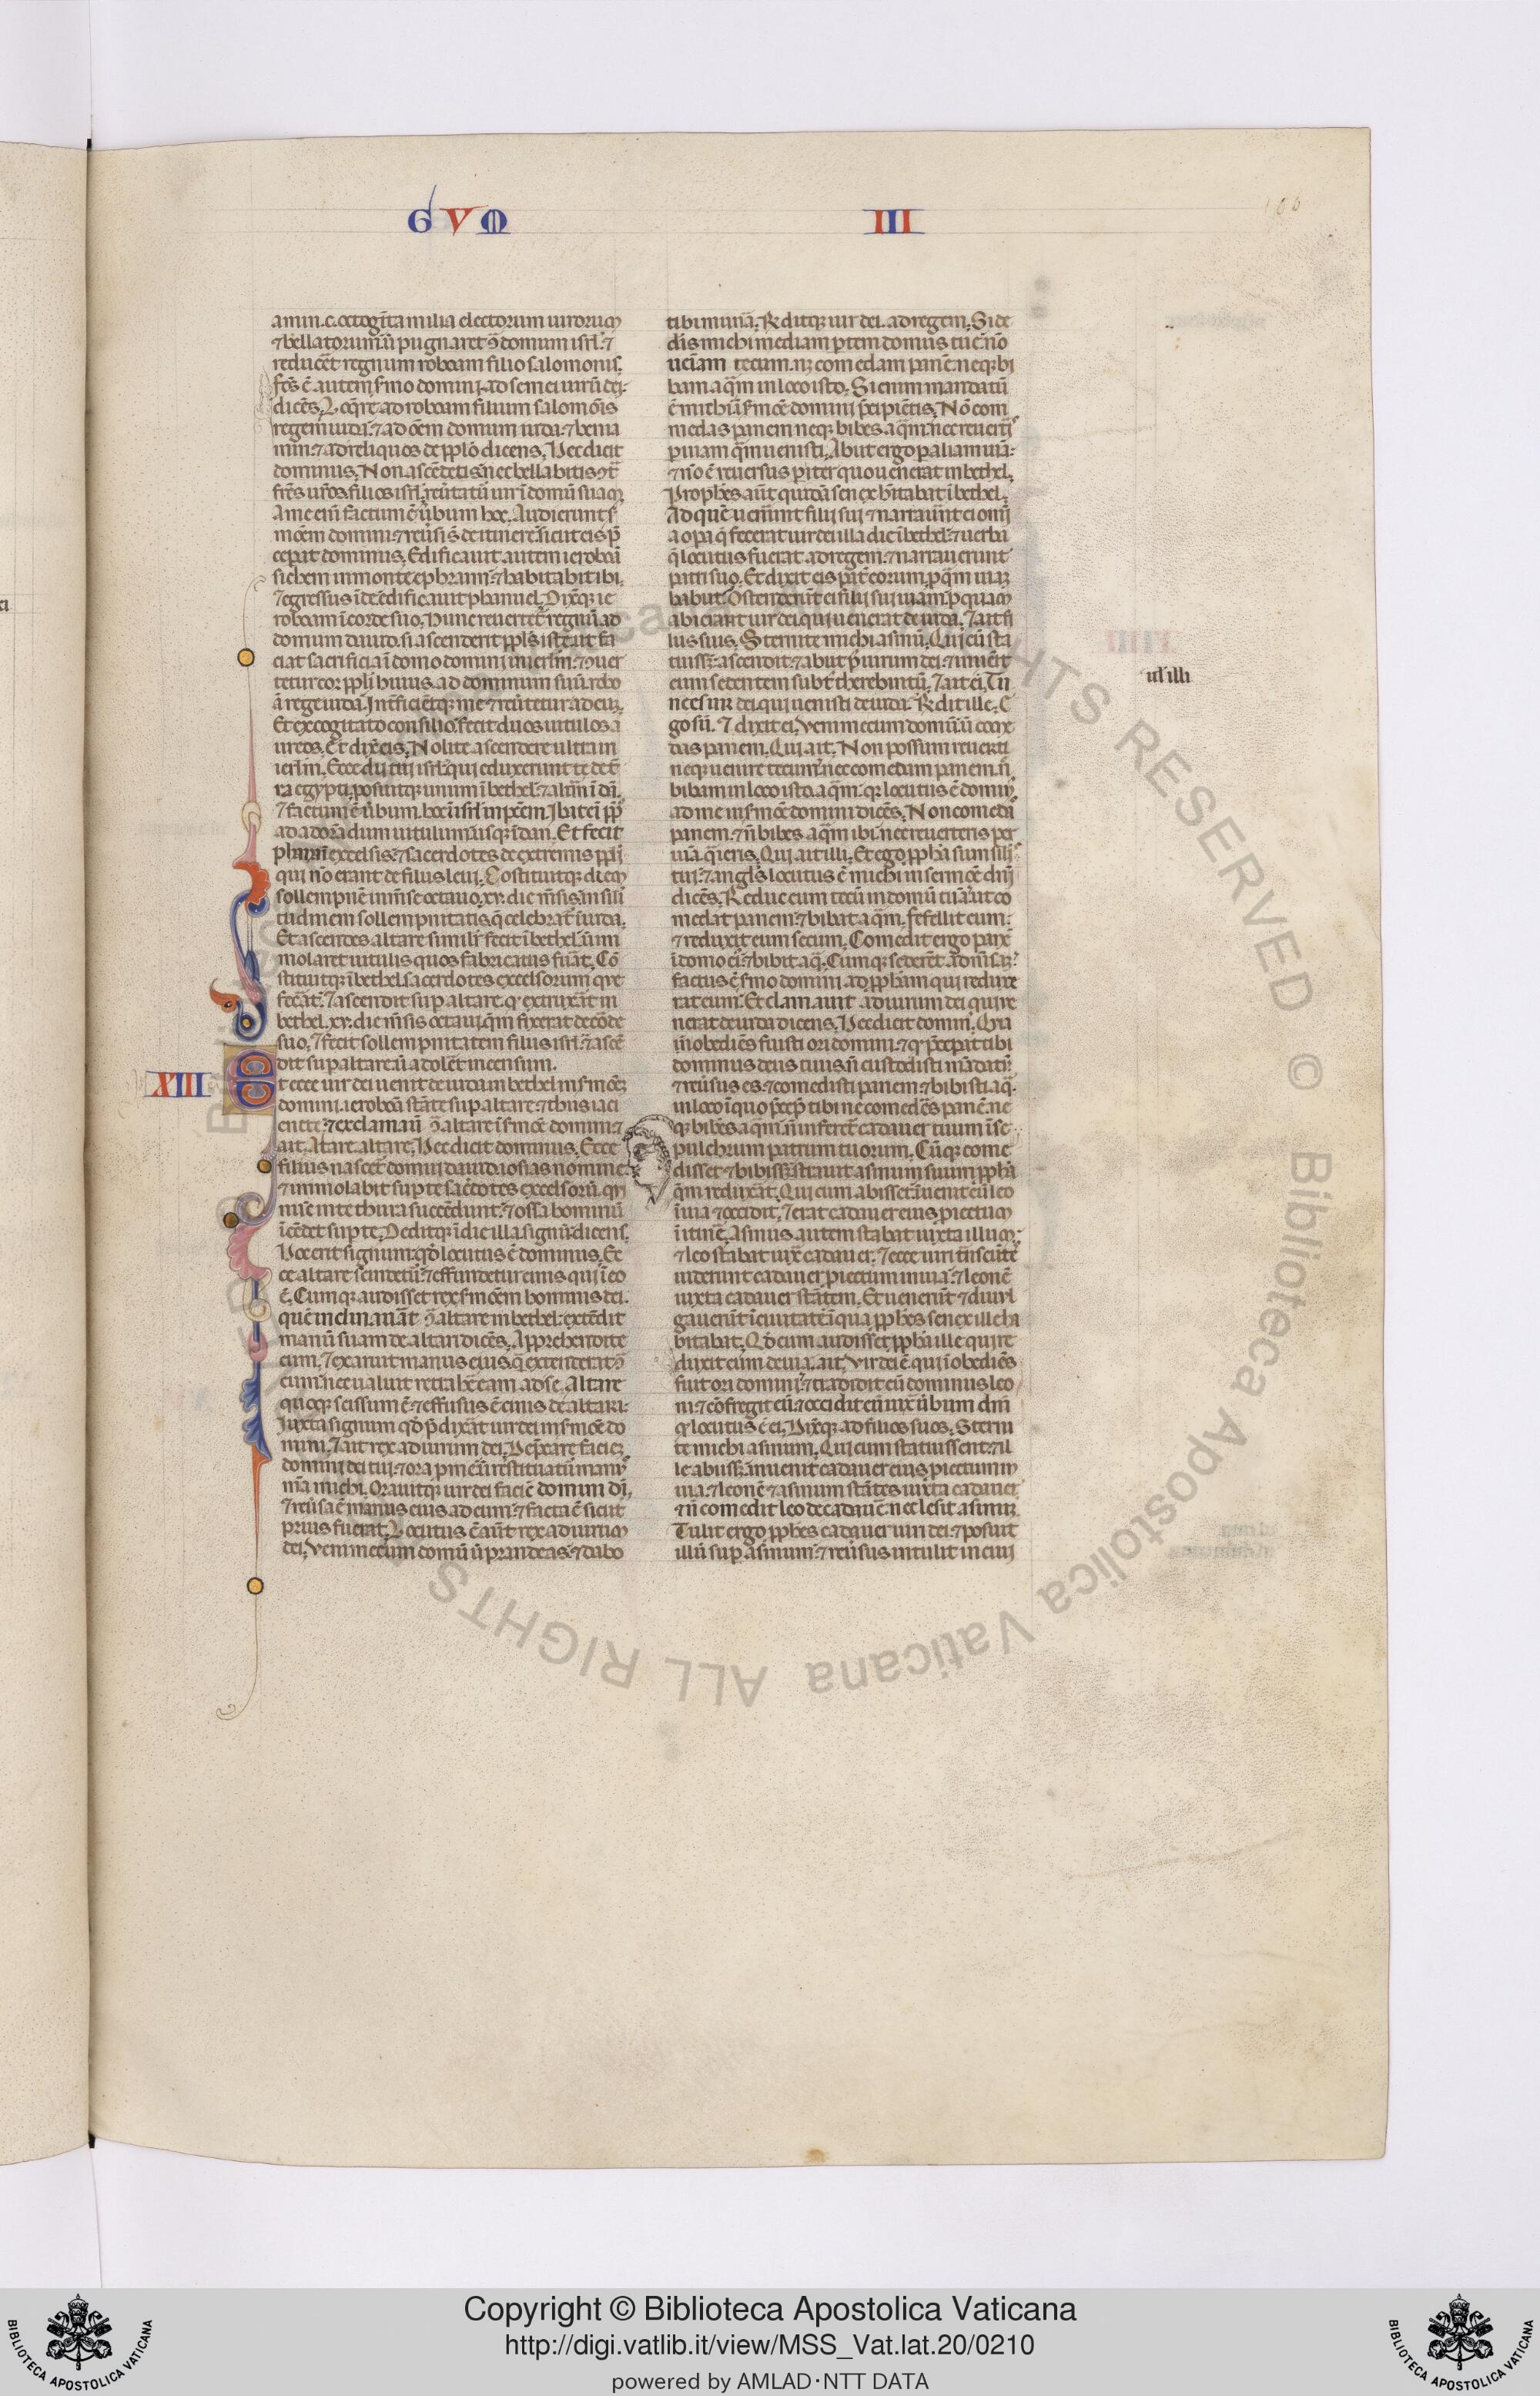 GVM III
106
amin .c. octogīta milia electorum uirorum
⁊ bellatorum. ut pugnaret ɔ̄ domum isrl. ⁊
reducēt regnum roboam filio salomonis.
fc̄s ē autem s̄mo domini ad semei uirū dei.
dicēs. Loqͥre ad roboam filium salomōis
regem iuda. ⁊ ad oēm domum iuda. ⁊ benia
min. ⁊ ad reliquos de pplō dicens. Hec dicit
dominus. Non ascēdetis nec bellabitis ɔt̄
fr̄es ur̄os filios isrl. reūtatū uir ī domū suam.
A me eīn factum ē ūbum hoc. Audierunt s̄
mōem domini. ⁊ reūsi s̄ de itinere. sicut eis p̄
ceperat dominus. Edificauit autem ieroboā
sichem in monte ephraim. ⁊ habitabit ibi.
⁊ egressus īde edificauit phanuel. Dixitqꝫ ie
roboam ī corde suo. Nunc reuertet̄ regnū ad
domum dauid. si ascenderit ppl̄s iste ut fa
ciat sacrificia ī domo domini in ierl̄m. ⁊ ɔuer
tetur cor ppl̄i huius ad dominum suū. robo
ā regē iuda. Int̄ficiētqꝫ me ⁊ reūtetur ad eū.
Et excogitato consilio. fecit duos uitulos a
ureos. Et dix̄ eis. Nolite ascendere ultra in
ierl̄m. Ecce dii tui isrl. qui eduxerunt te de t̄
ra egypti. posuitqꝫ unum ī bethel. ⁊ altm̄ ī dā.
⁊ factum ē ūbum hoc ī isrl in pc̄m. Ibat eī ppl̄s
ad adorādum uitulum usqꝫ ī dan. Et fecit
phana ī excelsis. ⁊ sacerdotes de extremis ppl̄i
qui nō erant de filiis leui. Cōstituitqꝫ diem
sollempnē īn mēse octauo .xv. die mēsis. in sili
tudinem sollempnitatis q̄ celebrat̄ ī iuda.
Et ascēdēs altare similit̄ fecit ī bethel. ut im
molaret uitulis quos fabricatus fūat. Cō
stituitqꝫ ī bethel sacerdotes excelsorum q̄ fe
fecāt. ⁊ ascendit sup altare qd̄ extruxāt in
bethel .xv. die mēsis octaui. q̄m fixerat de cōde
suo. ⁊ fecit sollempnitatem filiis isrl. ⁊ ascē
dit sup altare ut adolēt incensum.
XIII
Et ecce uir dei uenit de iuda in bethel in s̄mōe
domini. ieroboā stāte sup altare. ⁊ thus iaci
ente. ⁊ exclamauī ɔ̄ altare ī s̄mōe domini. ⁊
ait. Altare altare. Hec dicit dominus. Ecce
filius nascet̄ domui dauid iosias nomine.
⁊ immolabit sup te sac̄dotes excelsorū. qui
nūc in te thura succēdunt. ⁊ ossa hominū
īcēdet sup te. Deditqꝫ ī die illa signū. dicens.
Hoc erit signum. qd̄ locutus ē dominus. Ec
ce altare scindetū. ⁊ effundetur cinis qui ī eo
ē. Cumqꝫ audisset rex s̄mōem hominis dei.
quē inclinauāt ɔ̄ altare in bethel. extēdit
manū suam de altari dicēs. Apprehendite
eum. ⁊ exaruit manus eius q̄ extenderat ɔ̄
eum. nec ualuit retrahē eam ad se. Altare
quoqꝫ scissum ē. ⁊ effusus ē cinis de altari.
Iuxta signum qd̄ p̄dixāt uir dei in s̄mōe do
mini. ⁊ ait rex ad uirum dei. Dep̄care faciem
domini dei tui. ⁊ ora p me. ut restituatū man
m̄a michi. Orauitqꝫ uir dei faciē domini dī.
⁊ reūsa ē manus eius ad eum. ⁊ facta ē sicut
prius fuerat. Locutus ē aūt rex ad uirum
dei. Veni mecum domū ut prandeas. ⁊ dabo
tibi munā. Rn̄ditqꝫ uir dei. ad regem. Si de
dīs michi mediam p̄tem domus tue. nō
ueniam tecum. nꝫ comedam panē. neqꝫ bi
bam aq̄m in loco isto. Si enim mandatū
ē michi ī s̄mōe domini p̄cipiētis. Nō com
medas panem neqꝫ bibes aq̄m. nec reuerteris
p uiam q̄m uenisti. Abiit ergo p aliam uiā.
⁊ nō ē reuersus p iter quo uenerat in bethel.
Prophēs aūt quidā senex hītabat ī bethel.
Ad quē uenīunt filii sui. ⁊ narrauīunt ei omī
a opa q̄ fecerat uir dei illa die ī bethel. ⁊ uerba
q̄ locutus fuerat ad regem. ⁊ narrauerunt
patri suo. Et dixit eis pat̄ eorum. p q̄m uiaꝫ
habiit. Ostenderūt ei filii sui uiam. p quam
abierat uir dei qui uenerat de iuda. ⁊ ait fi
liis suis. Sternite michi asinū. Qui cū sta
tuissꝫ. ascendit. ⁊ abiit p̄ uirum dei. ⁊ inuēit
eum sedentem subt̄ therebintū. ⁊ ait ei. Tu
ne es uir dei. qui uenisti de iuda. Rn̄dit ille. E
go sū. ⁊ dixit ei. Veni mecum domū. ut come
das panem. Qui ait. Non possum reuerti
neqꝫ uenire tecum. nec comedam panem. n̄
bibam in loco isto aq̄m. qꝫ locutus ē dominus
ad me in s̄mōe domini dicēs. Non comedā
panem. ⁊ n̄ bibes aq̄m ibi. nec reuerteris per
uiā q̄ ieris. Qui ait illi. Et ego ppha sum sil̄is
tui. ⁊ angl̄s locutus ē michi in sermōe dn̄i
dicēs. Reduc eum tecū in domū tuā. ut co
medat panem. ⁊ bibat aq̄m. Fefellit eum.
⁊ reduxit eum secum. Comedit ergo panē
ī domo ei. ⁊ bibit aq̄. Cumqꝫ sederēt ad mēsaꝫ.
factus ē s̄mo domini ad pphām qui reduxe
rat eum. Et clamauit ad uirum dei qui ue
nerat de iuda dicens. Hec dicit dominus. Quia
inobediēs fuisti ori domini. ⁊ qd̄ p̄cepit tibi
dominus deus tuus n̄ custodisti mādatū.
⁊ reūsus es. ⁊ comedisti panem. ⁊ bibisti aq̄.
in loco ī quo p̄cep̄ tibi ne comedēs panē. ne
qꝫ bibēs aq̄m. n̄ inferet̄ cadauer tuum ī se
pulchrum patrum tuorum. Cūqꝫ come
disset ⁊ bibissꝫ. strauit asinum suum pphē
q̄m reduxāt. Qui cum abisset. īuenit eū leo
ī uia ⁊ occidit. ⁊ erat cadauer eius piectum
ī itinē. Asinus autem stabat iuxta illum.
⁊ leo stabat iux̄ cadauer. ⁊ ecce uiri trāseūtē
uiderunt cadauer piectum in uia. ⁊ leonē
iuxta cadauer stātem. Et uenerūt ⁊ diuul
gauerūt ī ciuitate ī qua pphēs senex ille ha
bitabat. Qd̄ cum audisset ppha ille qui re
duxit eum de uia. ait. Vir dei ē qui ī obediēs
fuit ori domini. ⁊ tradidit eū dominus leo
ni. ⁊ cōfregit eū. ⁊ occidit eū iux̄ ūbum dn̄i
qd̄ locutus ē ei. Dixitqꝫ ad filios suos. Sterni
te michi asinum. Qui cum stauissent. ⁊ il
le abiissꝫ. inuenit cadauer eius piectum in
uia. ⁊ leonē ⁊ asinum stātes iuxta cadauer.
⁊ n̄ comedit leo de cadauē. nec lesit asinū.
Tulit ergo pphēs cadauer uiri dei. ⁊ posuit
illū sup asinum. ⁊ reūsus intulit in ciui
ut illi
Copyright © Biblioteca Apostolica Vaticana
http://digi.vatlib.it/view/MSS_Vat.lat.20/0210
powered by AMLAD·NTT DATA
BIBLIOTECA APOSTOLICA VATICANA
BIBLIOTECA APOSTOLICA VATICANA
© Biblioteca Apostolica Vaticana ALL RIGHTS RESERVED